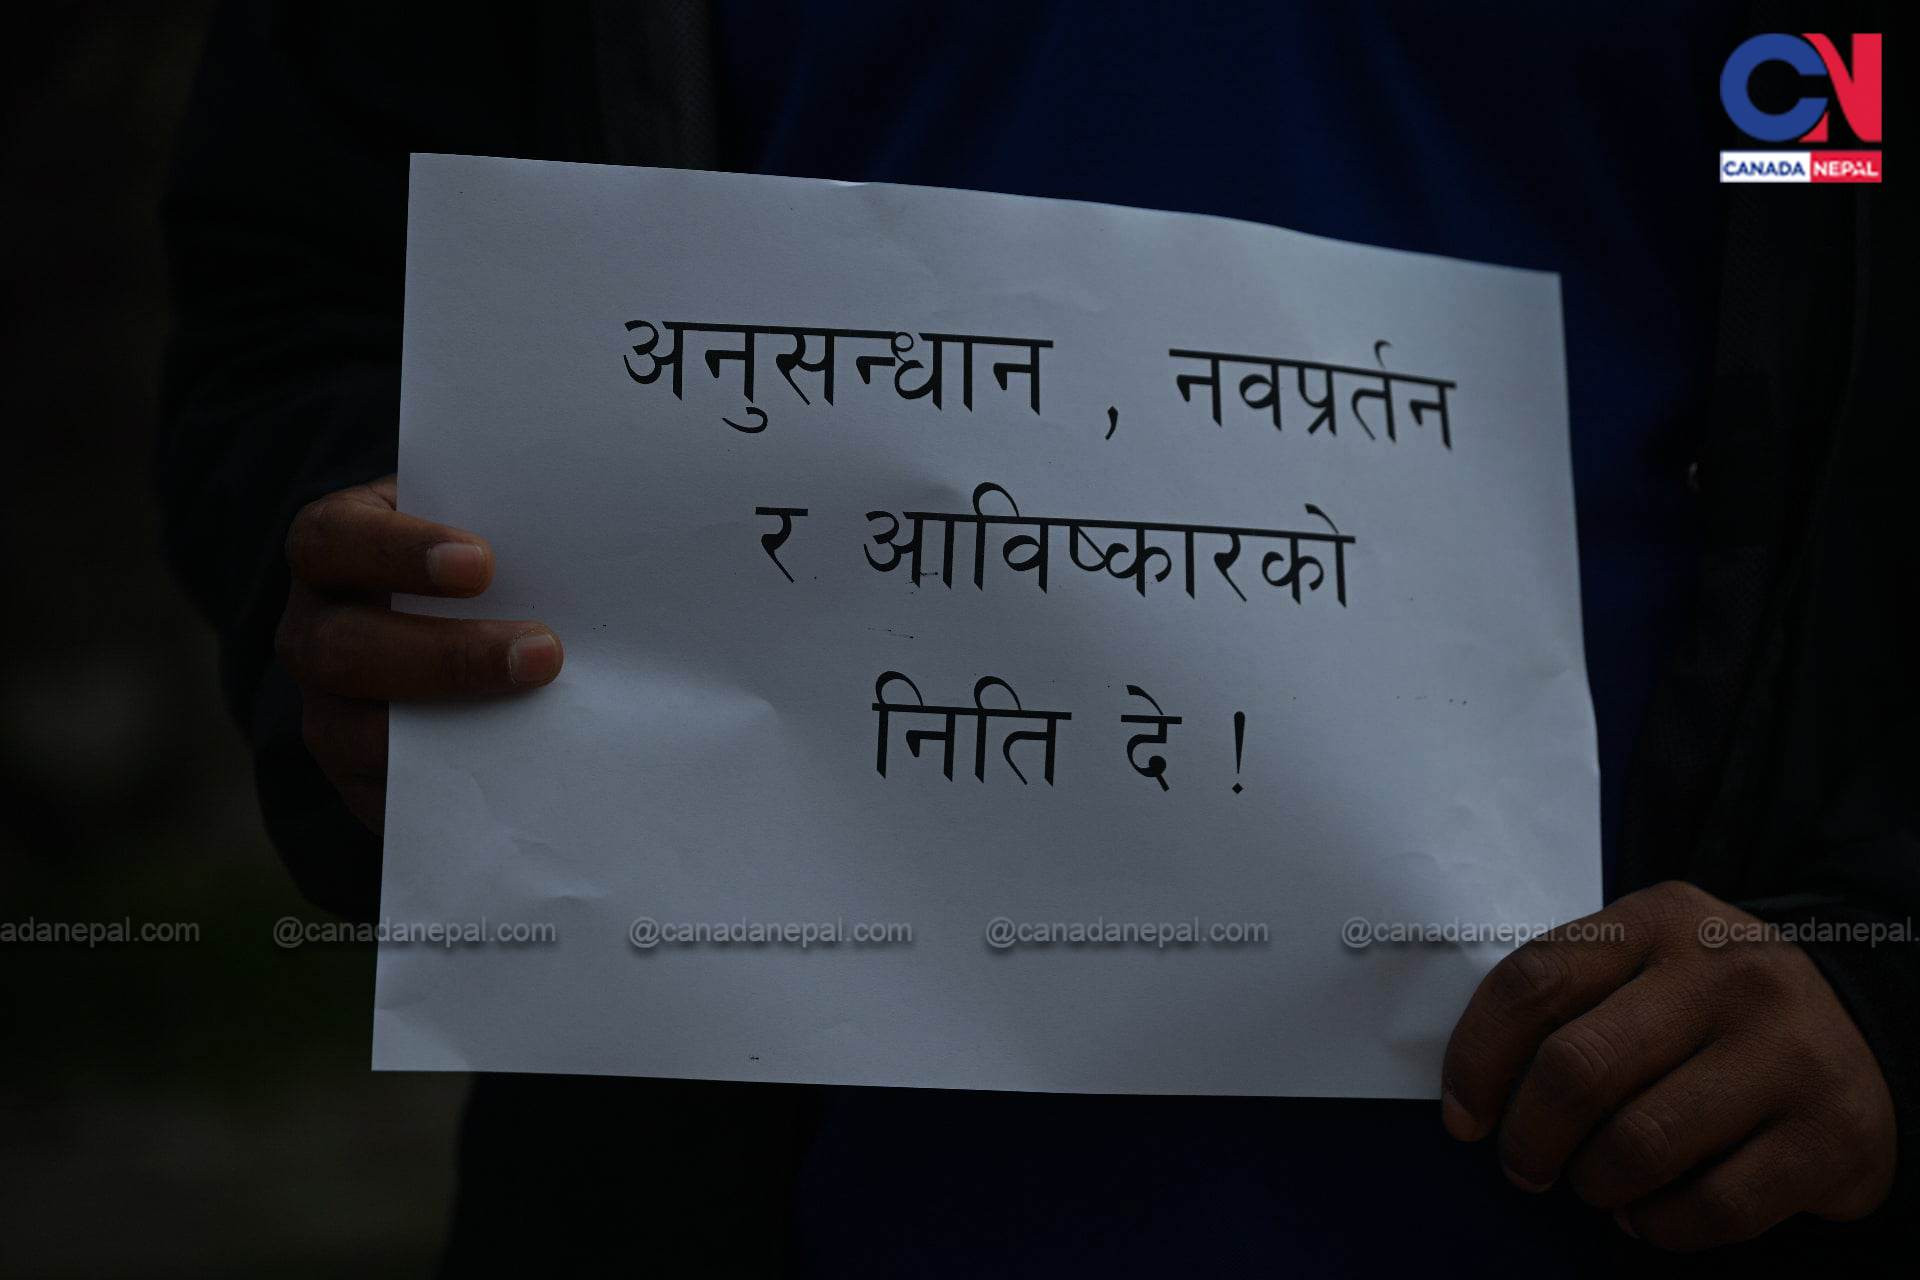 CN
CANADA NEPAL
अनुसन्धान , नवप्रर्तन
र आविष्कारको
निति दे !
adanepal.com @canadanepal.com @canadanepal.com @canadanepal.com @canadanepal.com @canadanepal.